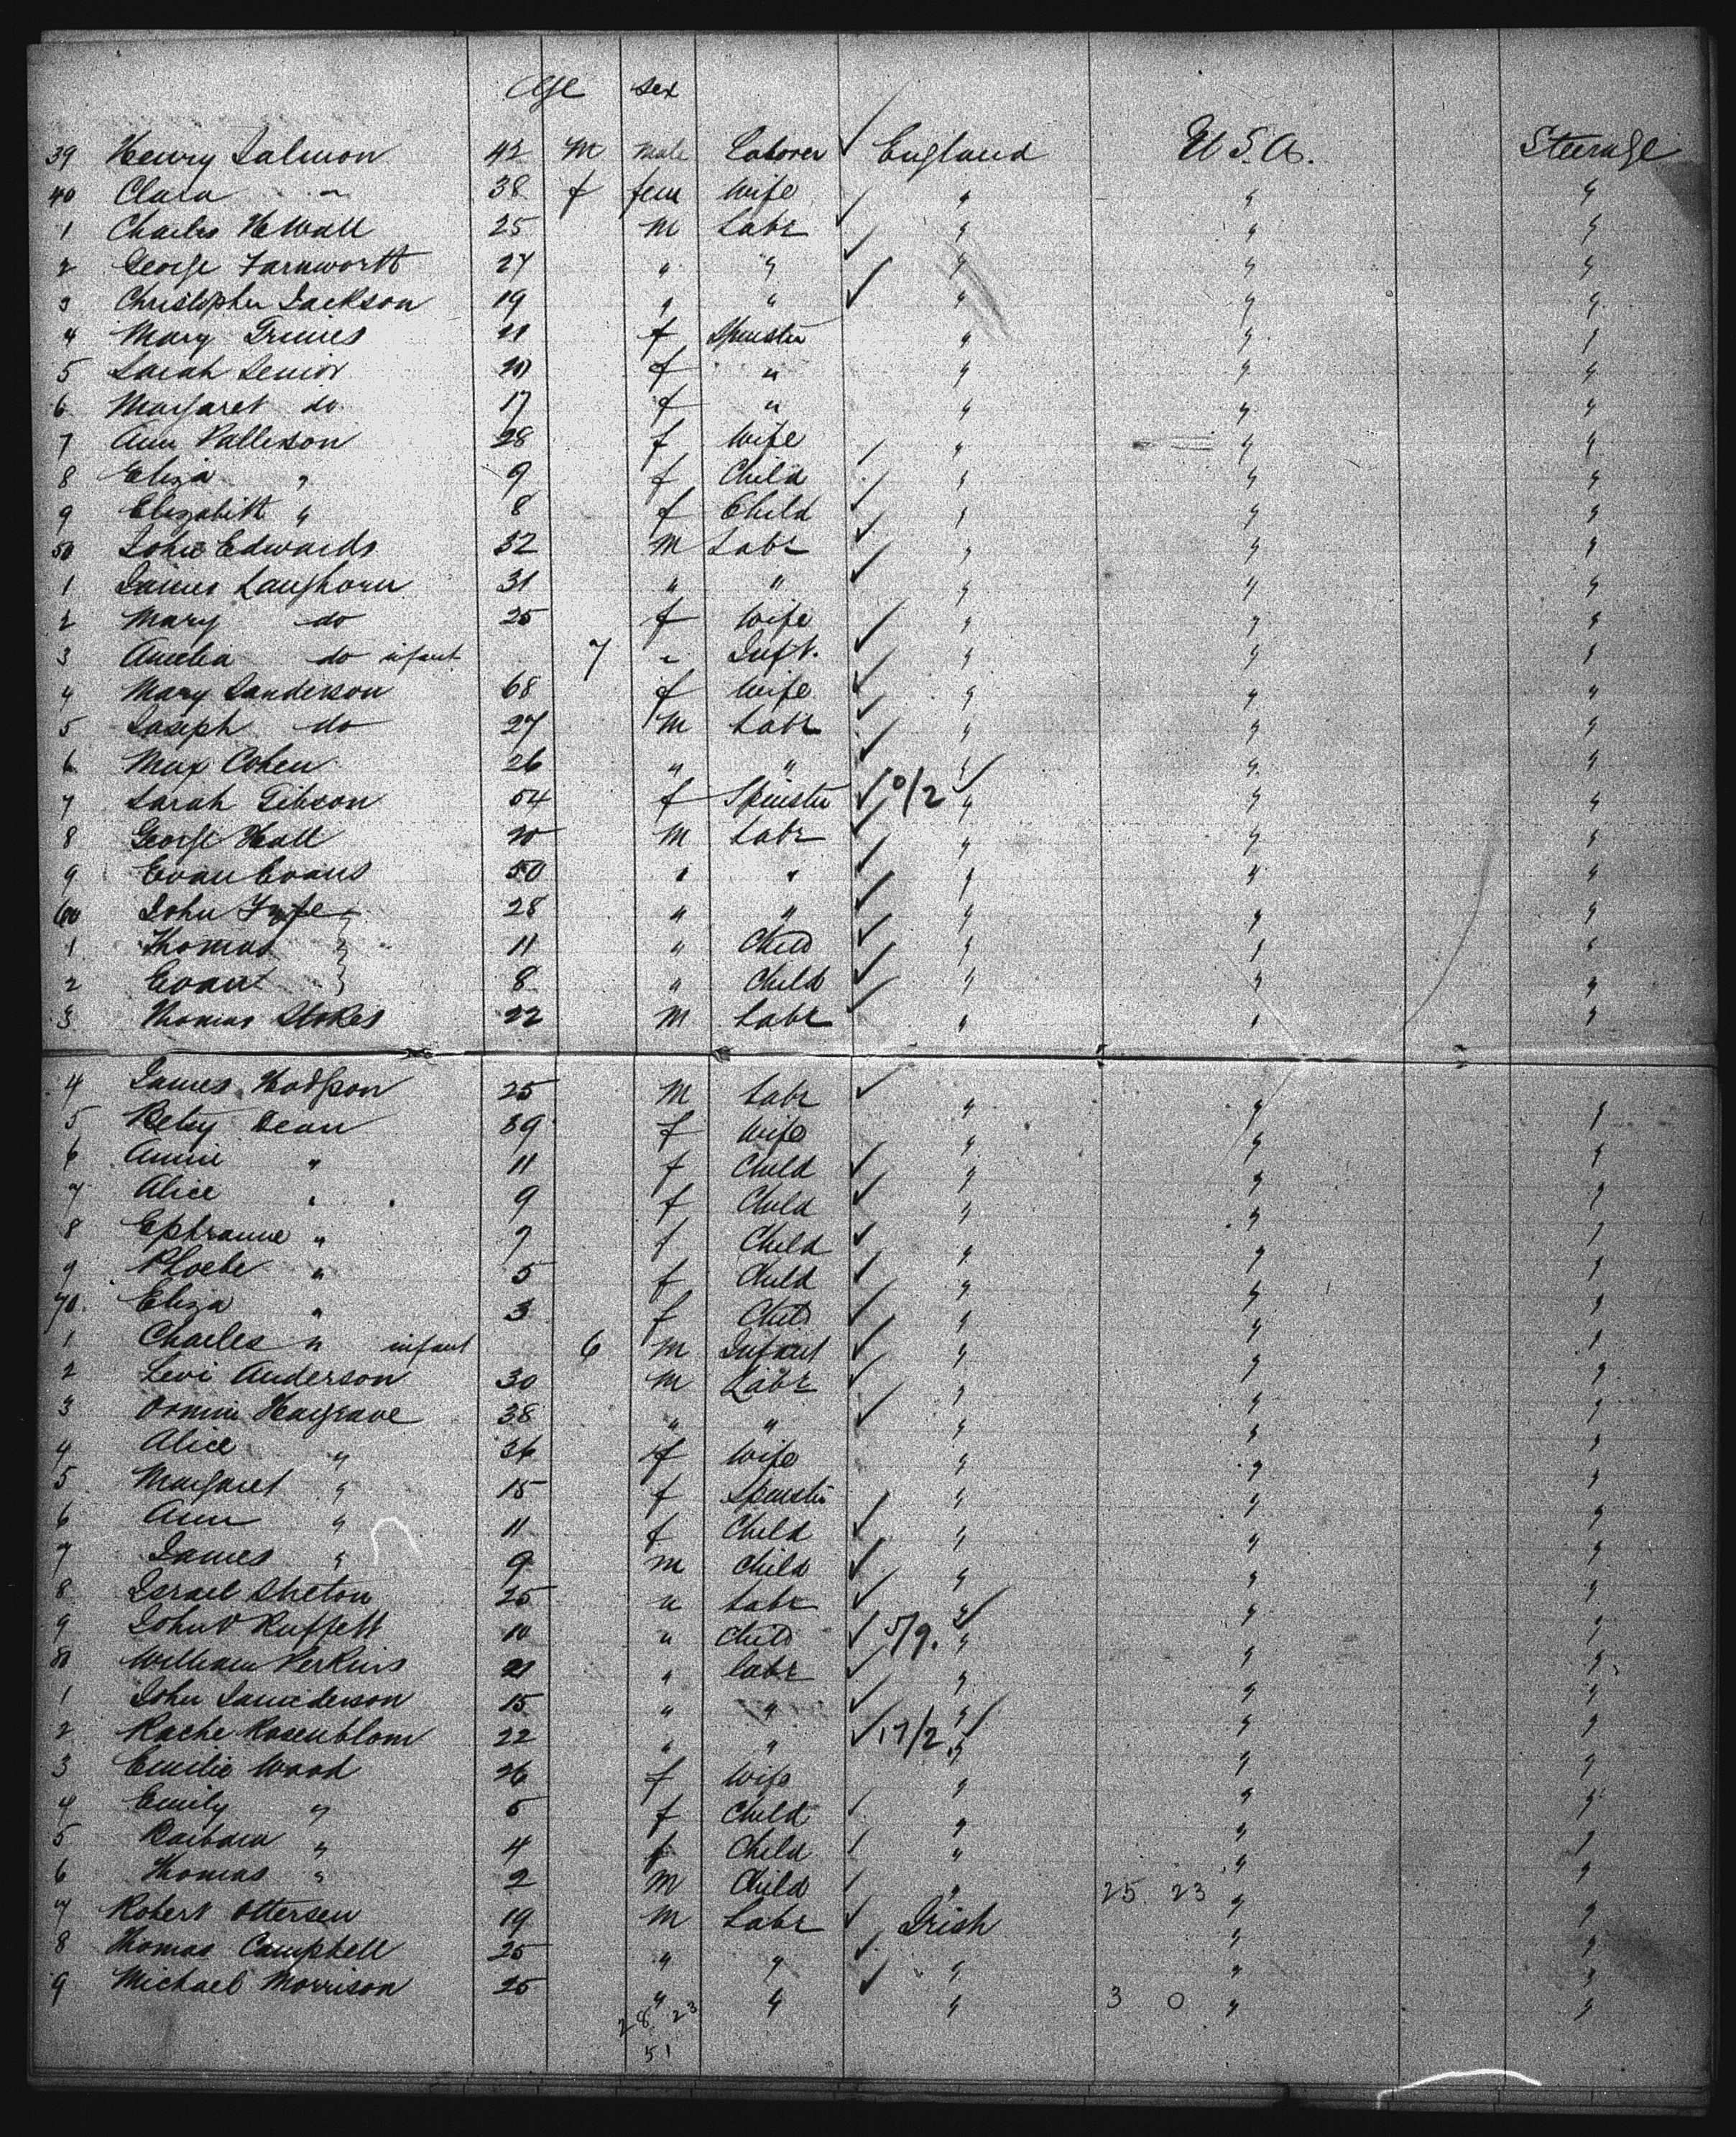 Age sex
39 Henry Salmon 42 M Male Laborer ✓ England U S. A. Steerage
40 Clara " 38 f fem Wife " " "
1 Charles H Wall 25 M Labr ✓ " " "
2 George Farnworth 27 " " ✓ " " "
3 Christopher Jackson 19 " " ✓ " " "
4 Mary 21 f Spinster " " "
5 Sarah Senior 20 f " " " "
6 Margaret do 17 f " " " "
7 Ann Pattison 28 f Wife " " "
8 Eliza " 9 f Child ✓ " " "
9 Elizabeth " 8 f Child ✓ " " "
50 John Edwards 32 M Labr ✓ " " "
1 James Langhorn 31 " " ✓ " " "
2 Mary do 25 f Wife " " "
3 Amelia do infant 7 " Inft. ✓ " " "
4 Mary Sanderson 68 f Wife ✓ " " "
5 Joseph do 27 M Labr ✓ " " "
6 Max Cohen 26 " " ✓ " " "
7 Sarah Gibson 54 f Spinster ✓ 0/2 ✓ " " "
8 George Hall 20 M Labr ✓ " " "
9 Evan Evans 50 " " ✓ " " "
60 John Fyfe 28 " " ✓ " " "
1 Thomas " 11 " Child ✓ " " "
2 Evan " 8 " Child ✓ " " "
3 Thomas Stokes 22 M Labr ✓ " " "
4 James Hodgson 25 M Labr ✓ " " "
5 Betsy Dean 39 f Wife " " "
6 Annie " 11 f Child ✓ " " "
7 Alice " 9 f Child ✓ " " "
8 Ephraime " 7 f Child ✓ " " "
9 Phoebe " 5 f Child ✓ " " "
70. Eliza " 3 f Child ✓ " " "
1 Charles " infant 6 M Infant ✓ " " "
2 Levi Anderson 30 M Labr ✓ " " "
3 Hargrave 38 " " ✓ " " "
4 Alice " 36 f Wife " " "
5 Margaret " 15 f Spinster " " "
6 Ann " 11 f Child ✓ " " "
7 James " 9 M Child ✓ " " "
8 Israel 25 " Labr ✓ " " "
9 John 10 " Child ✓ 5/9. ✓ " " "
80 William Perkins 21 " Labr ✓ " " "
1 John 15 " " ✓ " " "
2 Rache Rosenblom 22 " " ✓ 17/2 ✓ " " "
3 Emilie Wood 26 f Wife " " "
4 Emily " 5 f Child ✓ " " "
5 Barbara " 4 f Child ✓ " " "
6 Thomas " 2 M Child ✓ " 25 23 " "
7 Robert Ottersen 19 M Labr ✓ Irish " "
8 Thomas Campbell 25 " " ✓ " " "
9 Michael Morrison 25 " " ✓ " 3 0 " "
28 23
51